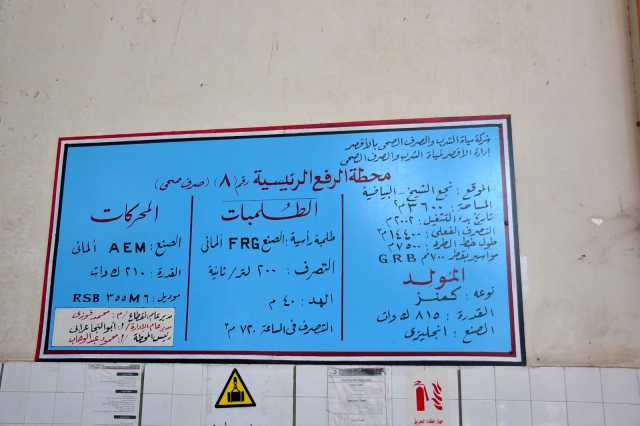 شركة مياة الشرب والصرف الصحى بالأقصر
إدارة الأقصر لمياة الشرب والصرف الصحى
محطة الرفع الرئيسية رقم (٨) (صرف صحى)
الموقع : نجع الشيخ - البياضية
المساحة : ٣٦٠٠ م٢
تاريخ بدء التشغيل : ٢٠٠٢ م
التصرف الفعلى : ١٤٤٠٠ م٣
طول خط الطرد : ٧٥٠٠ م
مواسير بقطر ٧٠٠ م GRB
المولد
نوعه : كمنز
القدرة : ٨١٥ ك وات
الصنع : انجليزى
الطلمبات
طلمبة رأسية : الصنع FRG ألمانى
التصرف : ٢٠٠ لتر/ثانية
الهد : ٤٠ م
التصرف فى الساعة ٧٢٠ م٣
المحركات
الصنع : AEM ألمانى
القدرة : ٢١٠ ك وات
موديل : RSB ٣٥٥M٦
مدير عام القطاع / م : محمد فوزى
مدير عام الادارة / أ : ابوالنجا عرابى
رئيس المحطة / أ : محمود عبدالوهاب